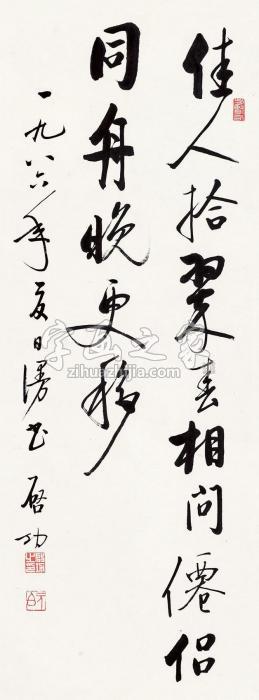 佳人拾翠春相问僊侣
同舟晚更移
一九八六年夏日漫书 启功
字画之家
zihuazhijia.com